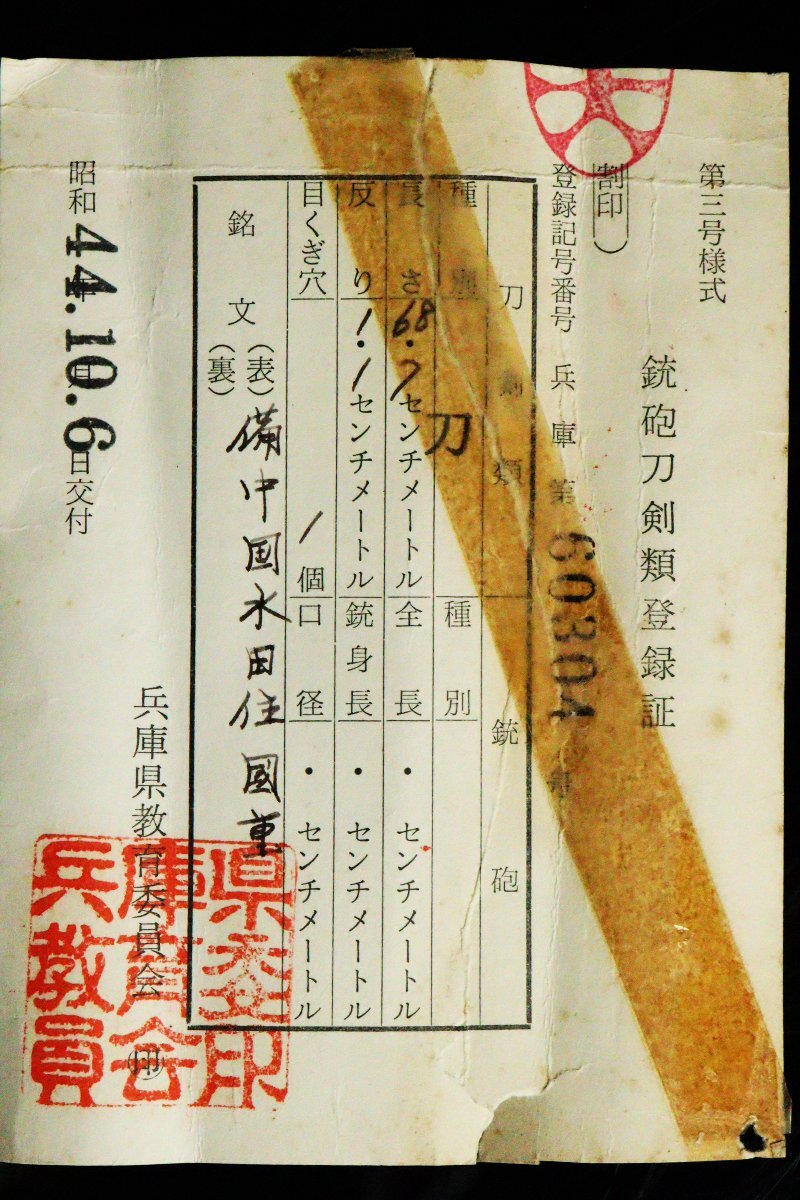 第三号様式
銃砲刀剣類登録証
(割印)
登録記号番号 兵庫 第 60304 号
刀剣類 銃砲
種別 刀 種別
長さ 68.7センチメートル 全長 ・センチメートル
反り 1.1センチメートル 銃身長 ・センチメートル
目くぎ穴 1個 口径 ・センチメートル
銘文 (表) 備中国水田住國重
(裏)
兵庫県教育委員会 印
昭和 44.10.6 年 月 日交付
兵庫県教育委員会印